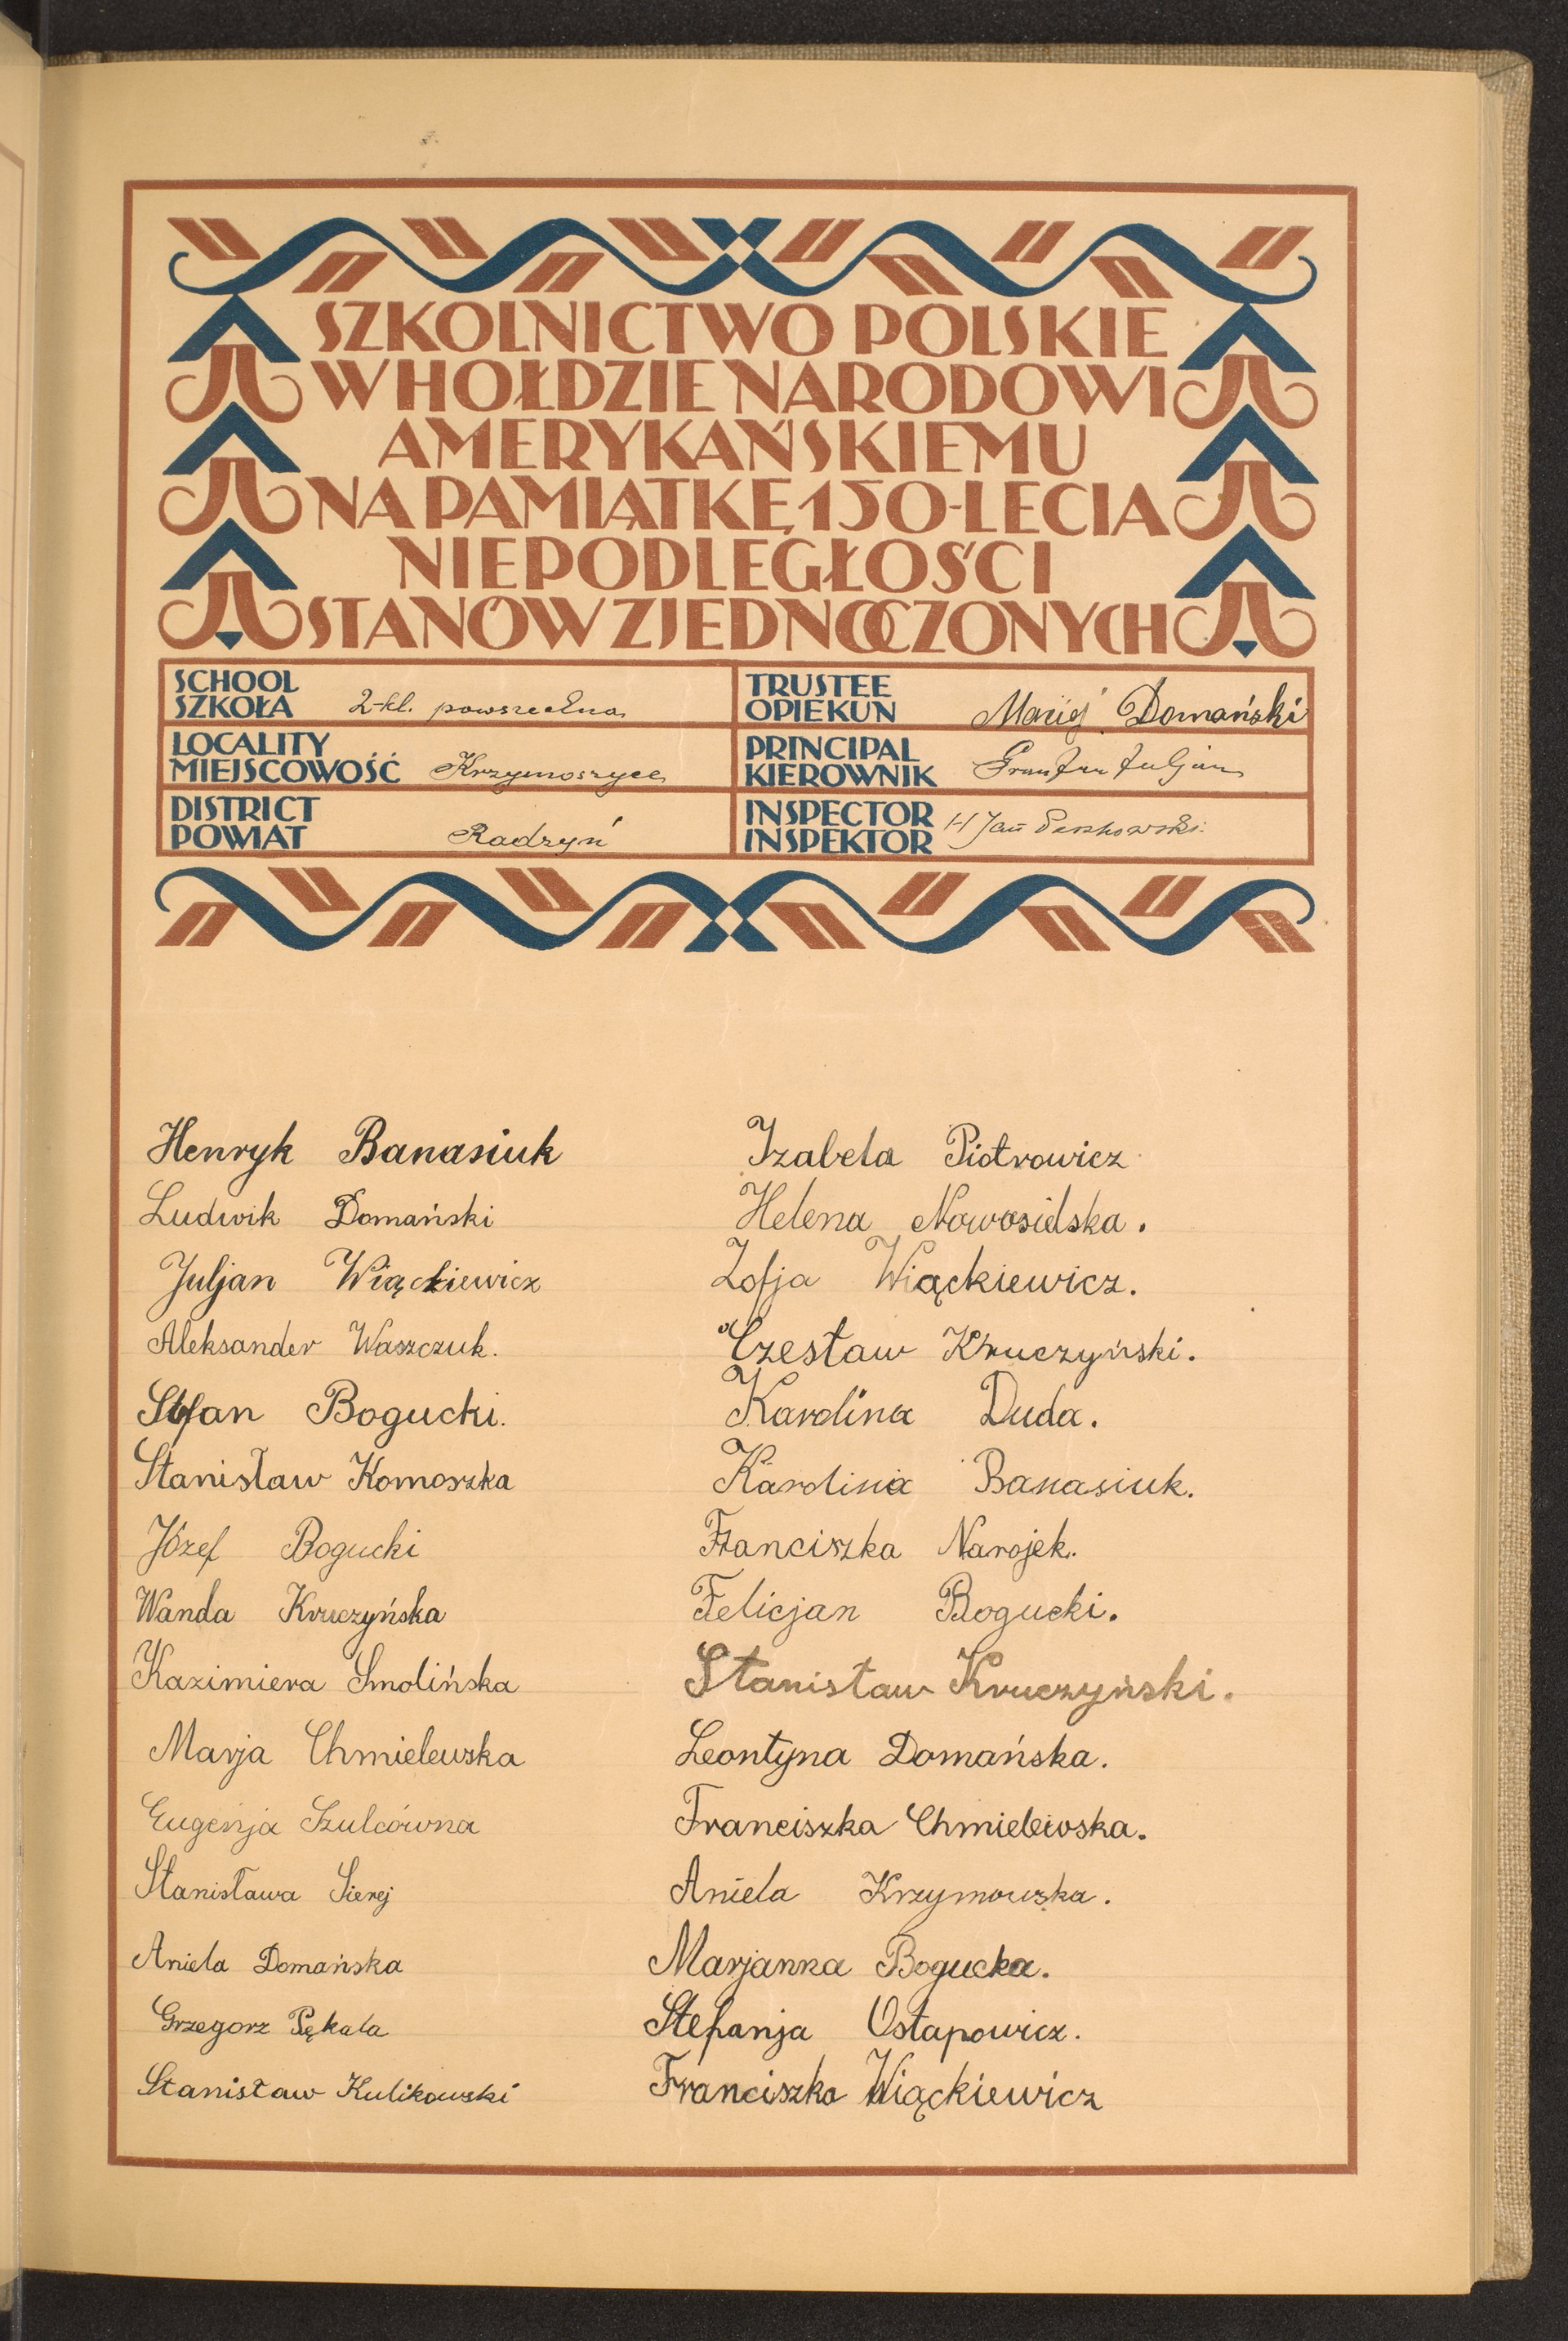 SZKOLNICTWO POLSKIE
W HOŁDZIE NARODOWI
AMERYKAŃSKIEMU
NA PAMIĄTKĘ 150-LECIA
NIEPODLEGŁOŚCI
STANÓW ZJEDNOCZONYCH
SCHOOL
SZKOŁA 2-kl. powszechna
TRUSTEE
OPIEKUN Maciej Domański
LOCALITY
MIEJSCOWOŚĆ Krzymoszyce
PRINCIPAL
KIEROWNIK Juljan
DISTRICT
POWIAT Radzyń
INSPECTOR
INSPEKTOR Jan
Henryk Banasiuk
Ludwik Domański
Juljan Wiąckiewicz
Aleksander Waszczuk.
Stefan Bogucki.
Stanisław Komoszka
Józef Bogucki
Wanda Kruczyńska
Kazimiera Smolińska
Marja Chmielewska
Eugenja Szulcówna
Stanisława Sierej
Aniela Domańska
Grzegorz Pękala
Stanisław Kulikowski
Izabela Piotrowicz
Helena Nowosielska.
Zofja Wiąckiewicz.
Czesław Kruczyński.
Karolina Duda.
Karolina Banasiuk.
Franciszka Narojek.
Felicjan Bogucki.
Stanisław Kruczyński.
Leontyna Domańska.
Franciszka Chmielewska.
Aniela Krzymowska.
Marjanna Bogucka.
Stefanja Ostapowicz.
Franciszka Wiąckiewicz